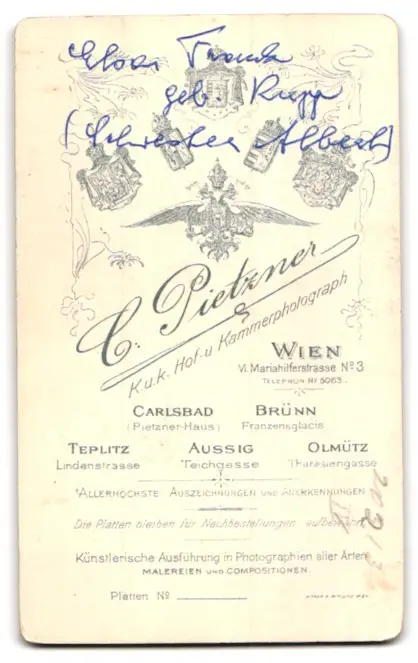 geb. Rupp
(Schwester Albert)
C. Pietzner
K.u.k. Hof- u. Kammerphotograph
WIEN
VI. Mariahilferstrasse No 3
TELEPHON Nr 5063.
CARLSBAD BRÜNN
(Pietzner-Haus) Franzensglacis
TEPLITZ AUSSIG OLMÜTZ
Lindenstrasse Teichgasse Theresiengasse
ALLERHÖCHSTE AUSZEICHNUNGEN UND ANERKENNUNGEN
Die Platten bleiben für Nachbestellungen aufbewahrt
Künstlerische Ausführung in Photographien aller Arten
MALEREIEN UND COMPOSITIONEN.
Platten No